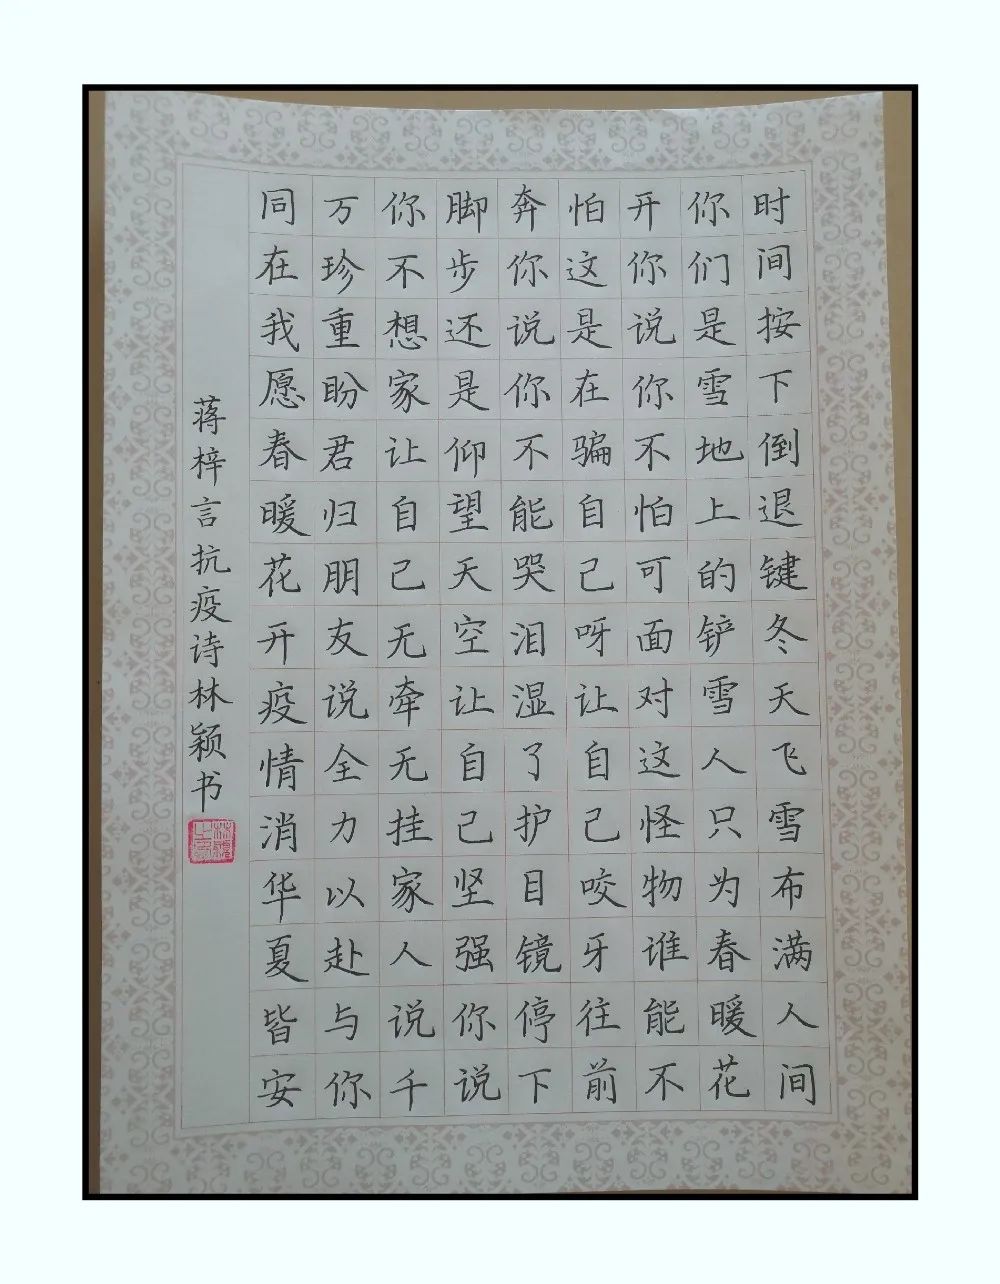 时间按下倒退键冬天飞雪布满人间
你们是雪地上的铲雪人只为春暖花
开你说你不怕可面对这怪物谁能不
怕这是在骗自己呀让自己咬牙往前
奔你说你不能哭泪湿了护目镜停下
脚步还是仰望天空让自己坚强你说
你不想家让自己无牵无挂家人说千
万珍重盼君归朋友说全力以赴与你
同在我愿春暖花开疫情消华夏皆安
蒋梓言抗疫诗林颖书